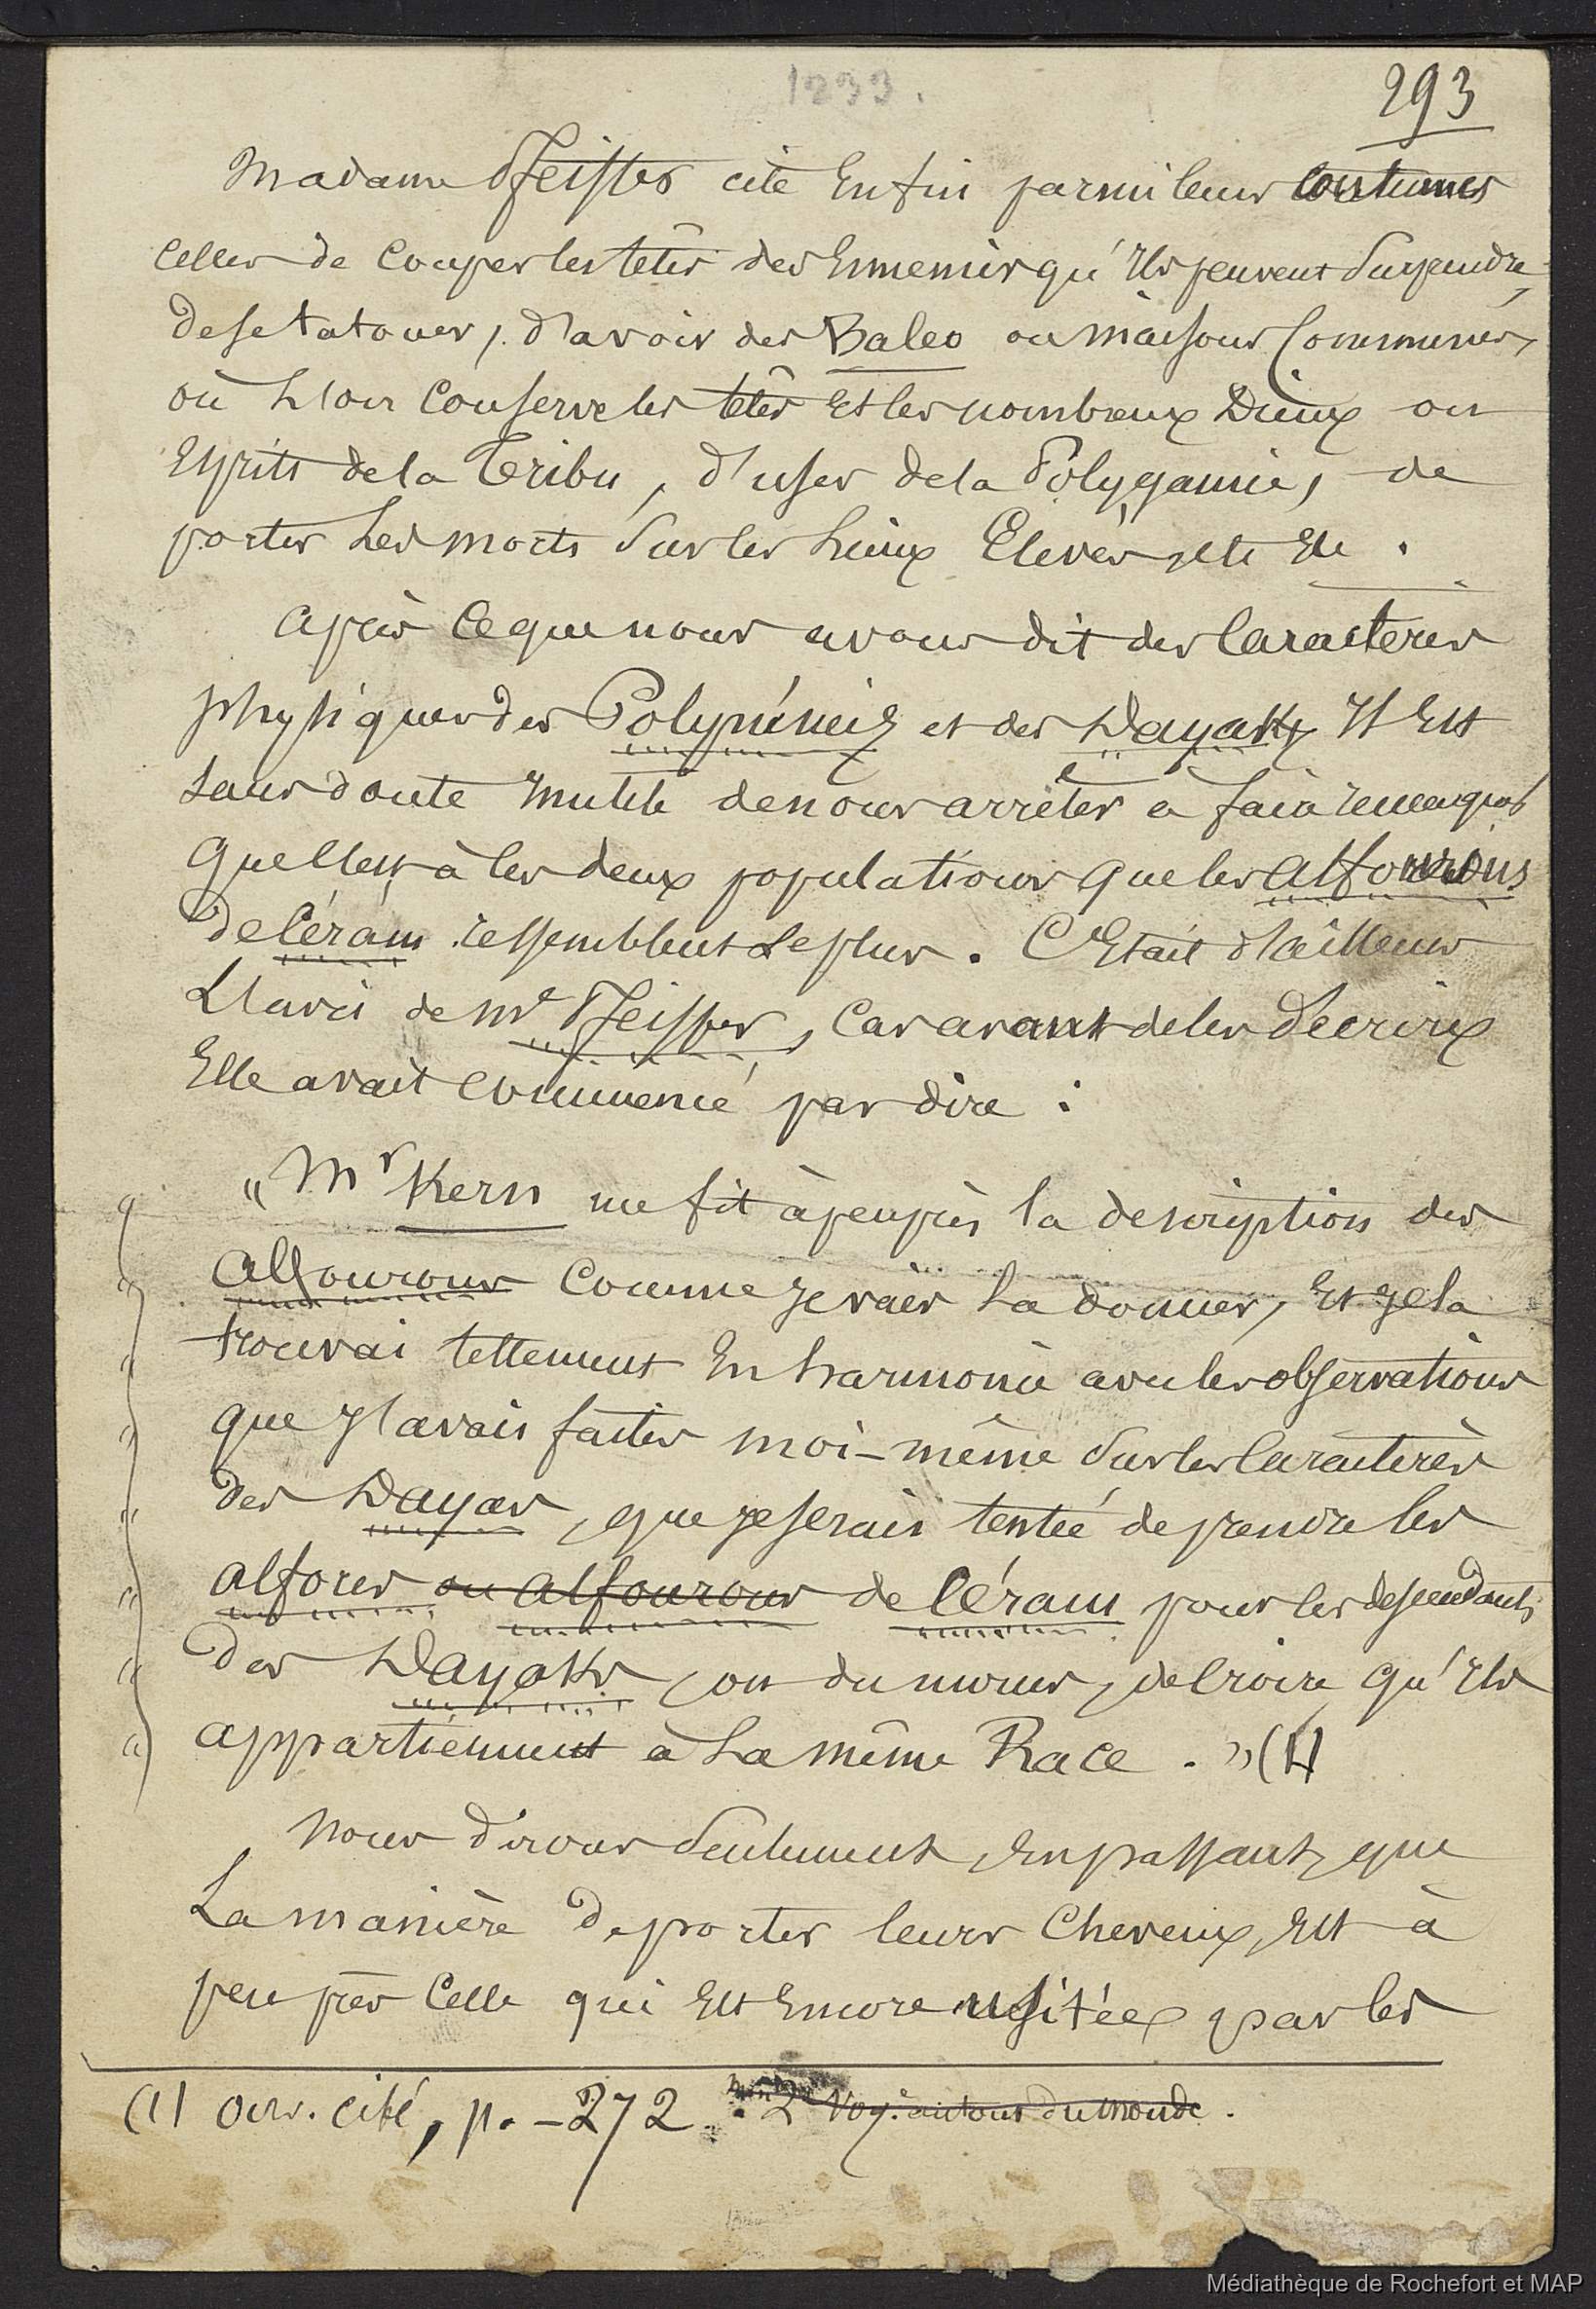 1233.
293
Madame Pfeiffer cite Enfin parmi leurs Coutumes
Celles de Couper les têtes des Ennemis qu'Ils peuvent Surprendre,
de se tatouer, d'avoir des Baleo ou maisons Communes,
où L'on Conserve les têtes Et les nombreux Dieux ou
Esprits de la Tribu, d'user de la Polygamie, de
porter Les morts Sur les Lieux Elevés, etc Etc.
Après Ce que nous avons dit des Caractères
physiques des Polynésiens et des Dayaks, Il Est
Sans doute Inutile de nous arrêter à faire remarquer
que C'est à Ces deux populations que les Alfourous
de Céram ressemblent Le plus. C'Etait d'ailleurs
L'avis de Me Pfeiffer, Car avant de les Décrire
Elle avait Commencé par dire :
"Mr Kern me fit à peu près la description des
Alfourous Comme Je vais La donner, Et Je la
trouvai tellement En harmonie avec les observations
que J'avais faites moi-même Sur les Caractères
des Dayas, que Je serais tentée de prendre les
Alfores ou Alfourous de Céram pour les descendants
des Dayaks, ou du moins, de Croire qu'Ils
appartiennent à La même Race. " (1)
Nous dirons Seulement, En passant, que
La manière de porter leurs Cheveux, Est à
peu près Celle qui Est Encore usitée par les
(1) Ouv. cité, p. - 272. 2e Voy. autour du monde.
Médiathèque de Rochefort et MAP